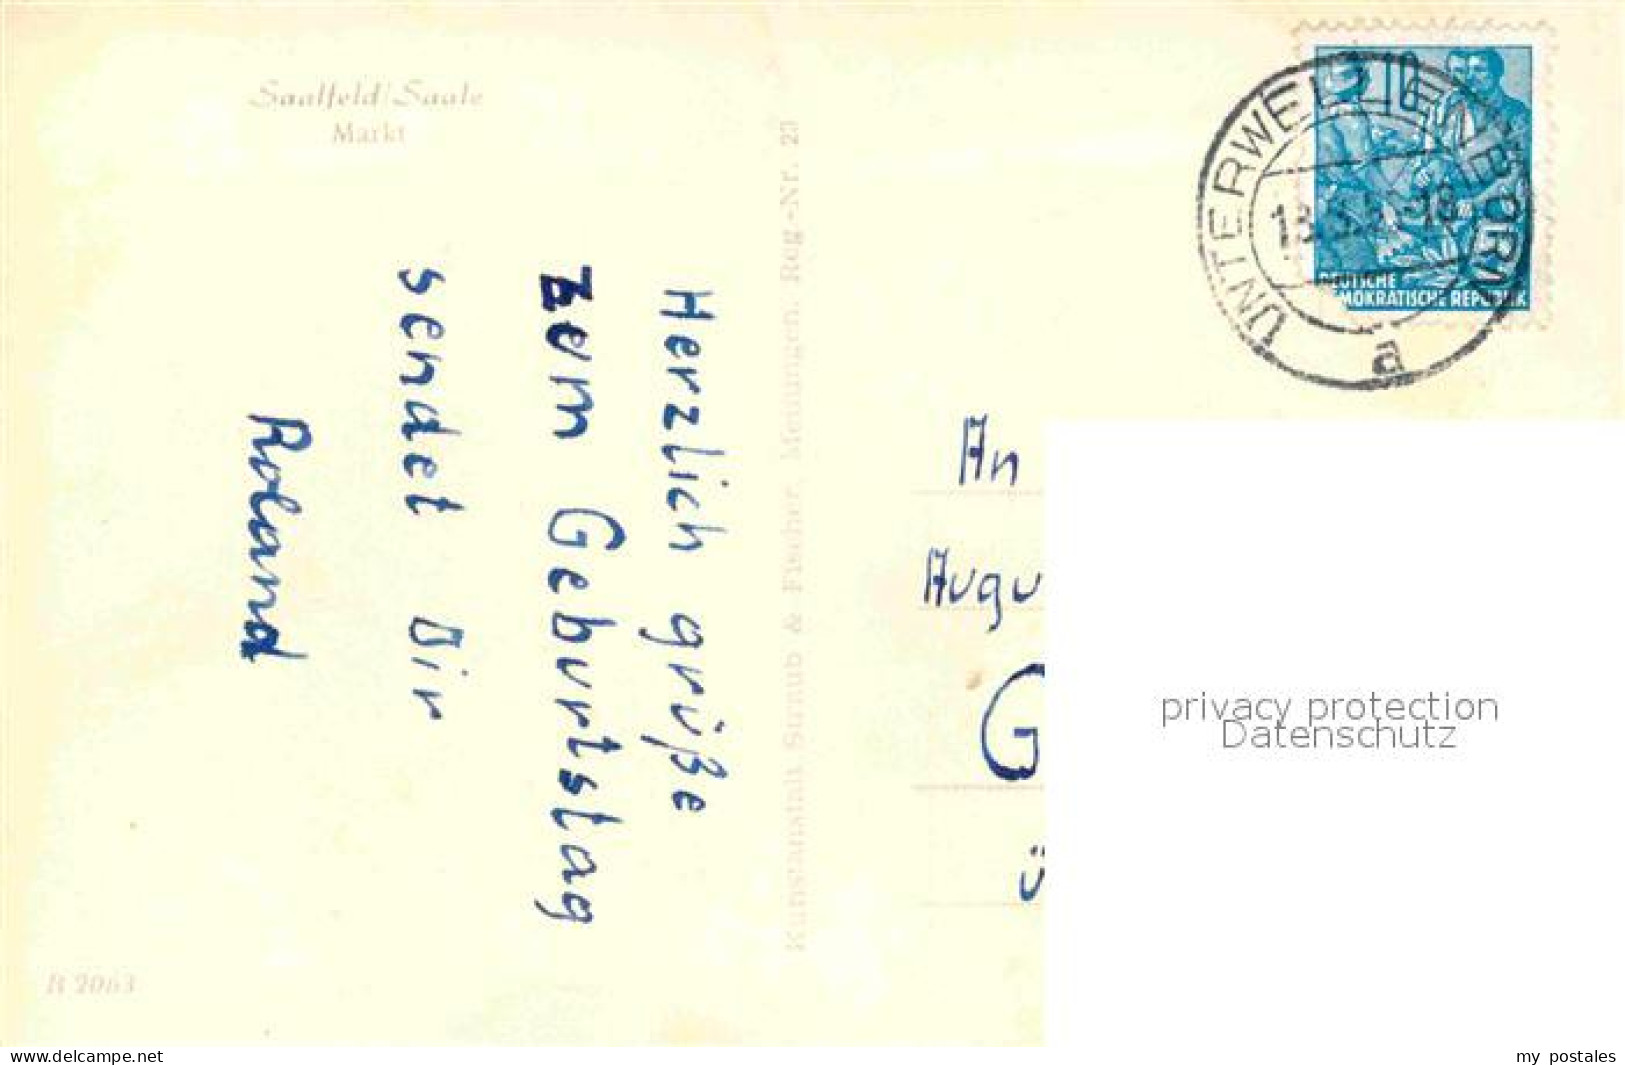 Saalfeld/Saale
Markt
Herzlich grüße
zum Geburtstag
sendet Dir
Roland
B 2063
Kunstanstalt Straub & Fischer, Meiningen. Reg-Nr. 23
10
DEUTSCHE
DEMOKRATISCHE REPUBLIK
UNTERWELLENBORN
a
An
Augu
G
ü
privacy protection
Datenschutz
www.delcampe.net
my_postales